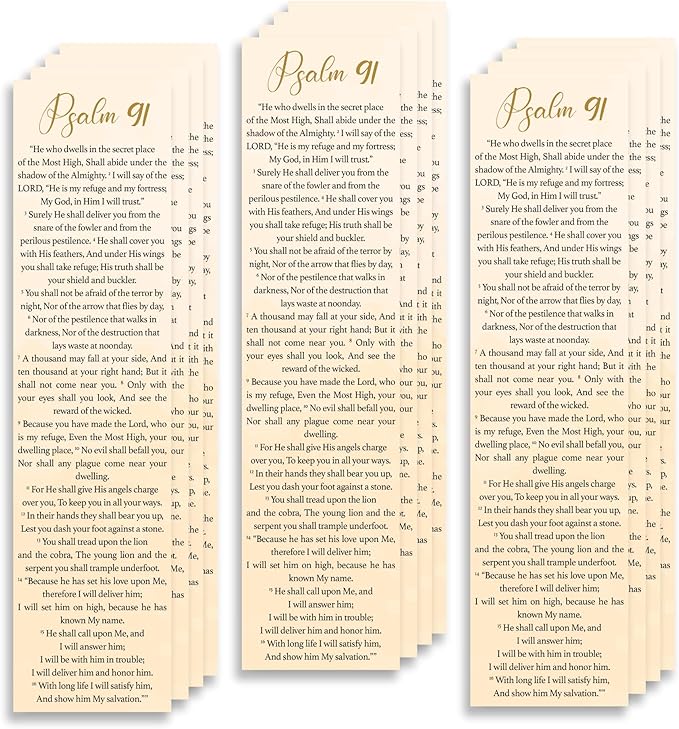 Psalm 91
“He who dwells in the secret place
of the Most High, Shall abide under the
shadow of the Almighty. ² I will say of the
LORD, “He is my refuge and my fortress;
My God, in Him I will trust.”
³ Surely He shall deliver you from the
snare of the fowler and from the
perilous pestilence. ⁴ He shall cover you
with His feathers, And under His wings
you shall take refuge; His truth shall be
your shield and buckler.
⁵ You shall not be afraid of the terror by
night, Nor of the arrow that flies by day,
⁶ Nor of the pestilence that walks in
darkness, Nor of the destruction that
lays waste at noonday.
⁷ A thousand may fall at your side, And
ten thousand at your right hand; But it
shall not come near you. ⁸ Only with
your eyes shall you look, And see the
reward of the wicked.
⁹ Because you have made the Lord, who
is my refuge, Even the Most High, your
dwelling place, ¹⁰ No evil shall befall you,
Nor shall any plague come near your
dwelling.
¹¹ For He shall give His angels charge
over you, To keep you in all your ways.
¹² In their hands they shall bear you up,
Lest you dash your foot against a stone.
¹³ You shall tread upon the lion
and the cobra, The young lion and the
serpent you shall trample underfoot.
¹⁴ “Because he has set his love upon Me,
therefore I will deliver him;
I will set him on high, because he has
known My name.
¹⁵ He shall call upon Me, and
I will answer him;
I will be with him in trouble;
I will deliver him and honor him.
¹⁶ With long life I will satisfy him,
And show him My salvation.””
Psalm 91
“He who dwells in the secret place
of the Most High, Shall abide under the
shadow of the Almighty. ² I will say of the
LORD, “He is my refuge and my fortress;
My God, in Him I will trust.”
³ Surely He shall deliver you from the
snare of the fowler and from the
perilous pestilence. ⁴ He shall cover you
with His feathers, And under His wings
you shall take refuge; His truth shall be
your shield and buckler.
⁵ You shall not be afraid of the terror by
night, Nor of the arrow that flies by day,
⁶ Nor of the pestilence that walks in
darkness, Nor of the destruction that
lays waste at noonday.
⁷ A thousand may fall at your side, And
ten thousand at your right hand; But it
shall not come near you. ⁸ Only with
your eyes shall you look, And see the
reward of the wicked.
⁹ Because you have made the Lord, who
is my refuge, Even the Most High, your
dwelling place, ¹⁰ No evil shall befall you,
Nor shall any plague come near your
dwelling.
¹¹ For He shall give His angels charge
over you, To keep you in all your ways.
¹² In their hands they shall bear you up,
Lest you dash your foot against a stone.
¹³ You shall tread upon the lion
and the cobra, The young lion and the
serpent you shall trample underfoot.
¹⁴ “Because he has set his love upon Me,
therefore I will deliver him;
I will set him on high, because he has
known My name.
¹⁵ He shall call upon Me, and
I will answer him;
I will be with him in trouble;
I will deliver him and honor him.
¹⁶ With long life I will satisfy him,
And show him My salvation.””
Psalm 91
“He who dwells in the secret place
of the Most High, Shall abide under the
shadow of the Almighty. ² I will say of the
LORD, “He is my refuge and my fortress;
My God, in Him I will trust.”
³ Surely He shall deliver you from the
snare of the fowler and from the
perilous pestilence. ⁴ He shall cover you
with His feathers, And under His wings
you shall take refuge; His truth shall be
your shield and buckler.
⁵ You shall not be afraid of the terror by
night, Nor of the arrow that flies by day,
⁶ Nor of the pestilence that walks in
darkness, Nor of the destruction that
lays waste at noonday.
⁷ A thousand may fall at your side, And
ten thousand at your right hand; But it
shall not come near you. ⁸ Only with
your eyes shall you look, And see the
reward of the wicked.
⁹ Because you have made the Lord, who
is my refuge, Even the Most High, your
dwelling place, ¹⁰ No evil shall befall you,
Nor shall any plague come near your
dwelling.
¹¹ For He shall give His angels charge
over you, To keep you in all your ways.
¹² In their hands they shall bear you up,
Lest you dash your foot against a stone.
¹³ You shall tread upon the lion
and the cobra, The young lion and the
serpent you shall trample underfoot.
¹⁴ “Because he has set his love upon Me,
therefore I will deliver him;
I will set him on high, because he has
known My name.
¹⁵ He shall call upon Me, and
I will answer him;
I will be with him in trouble;
I will deliver him and honor him.
¹⁶ With long life I will satisfy him,
And show him My salvation.””